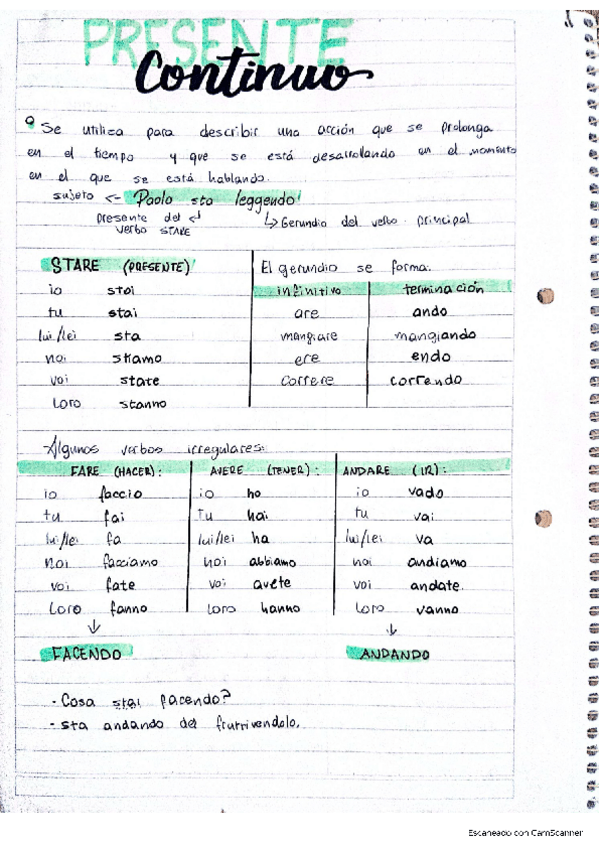 PRESENTE
Continuo
Se utiliza para describir una acción que se prolonga
en el tiempo y que se está desarrollando en el momento
en el que se está hablando.
sujeto <- Paolo sta leggendo!
presente del verbo STARE
Gerundio del verbo principal
STARE (PRESENTE)
io stoi
tu stai
lui/lei sta
noi stiamo
voi state
Loro stanno
El gerundio se forma:
infinitivo terminación
are ando
mangiare mangiando
ere endo
correre correndo
Algunos verbos irregulares:
FARE (HACER):
io faccio
tu fai
lui/lei fa
noi facciamo
voi fate
Loro fanno
FACENDO
AVERE (TENER):
io ho
tu hai
lui/lei ha
noi abbiamo
voi avete
Loro hanno
ANDARE (IR):
io vado
tu vai
lui/lei va
noi andiamo
voi andate.
Loro vanno
ANDANDO
- Cosa stai facendo?
- sta andando del fruttivendolo.
Escaneado con CamScanner